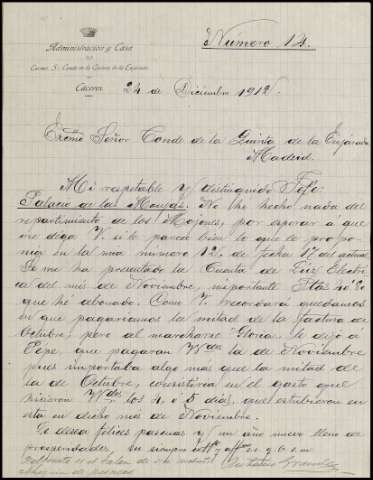 Número 14.
Administración y Casa
del
Excmo. Sr. Conde de la Quinta de la Enjarada
Cáceres
24 de Diciembre 1912.
Excmo Señor Conde de la Quinta de la Enjarada
Madrid.
Mi respetable y distinguido Jefe:
Palacio de las Monjas. No he hecho nada del
repartimiento de los Mojones, por esperar á que
me diga V. si le parece bien lo que le propo-
nia en la mia numero 12, de fecha 17 del actual.
Se me ha presentado la Cuenta de Luz Electri-
ca del mes de Noviembre, importante Ptas
que hé abonado. Como V. recordará quedamos
en que pagariamos la mitad de la factura de
Octubre, pero al marcharse Gloria le dejó á
Pepe, que pagaran la de Noviembre
pues importaba algo mas que la mitad de
la de Octubre, consistiria en el gasto que
hicieron los 4 ó 5 dias, que estubieron en
esta en dicho mes de Noviembre.
Le desea felices pascuas y un año nuevo lleno de
prosperidades, su siempre y q. b. s. m.